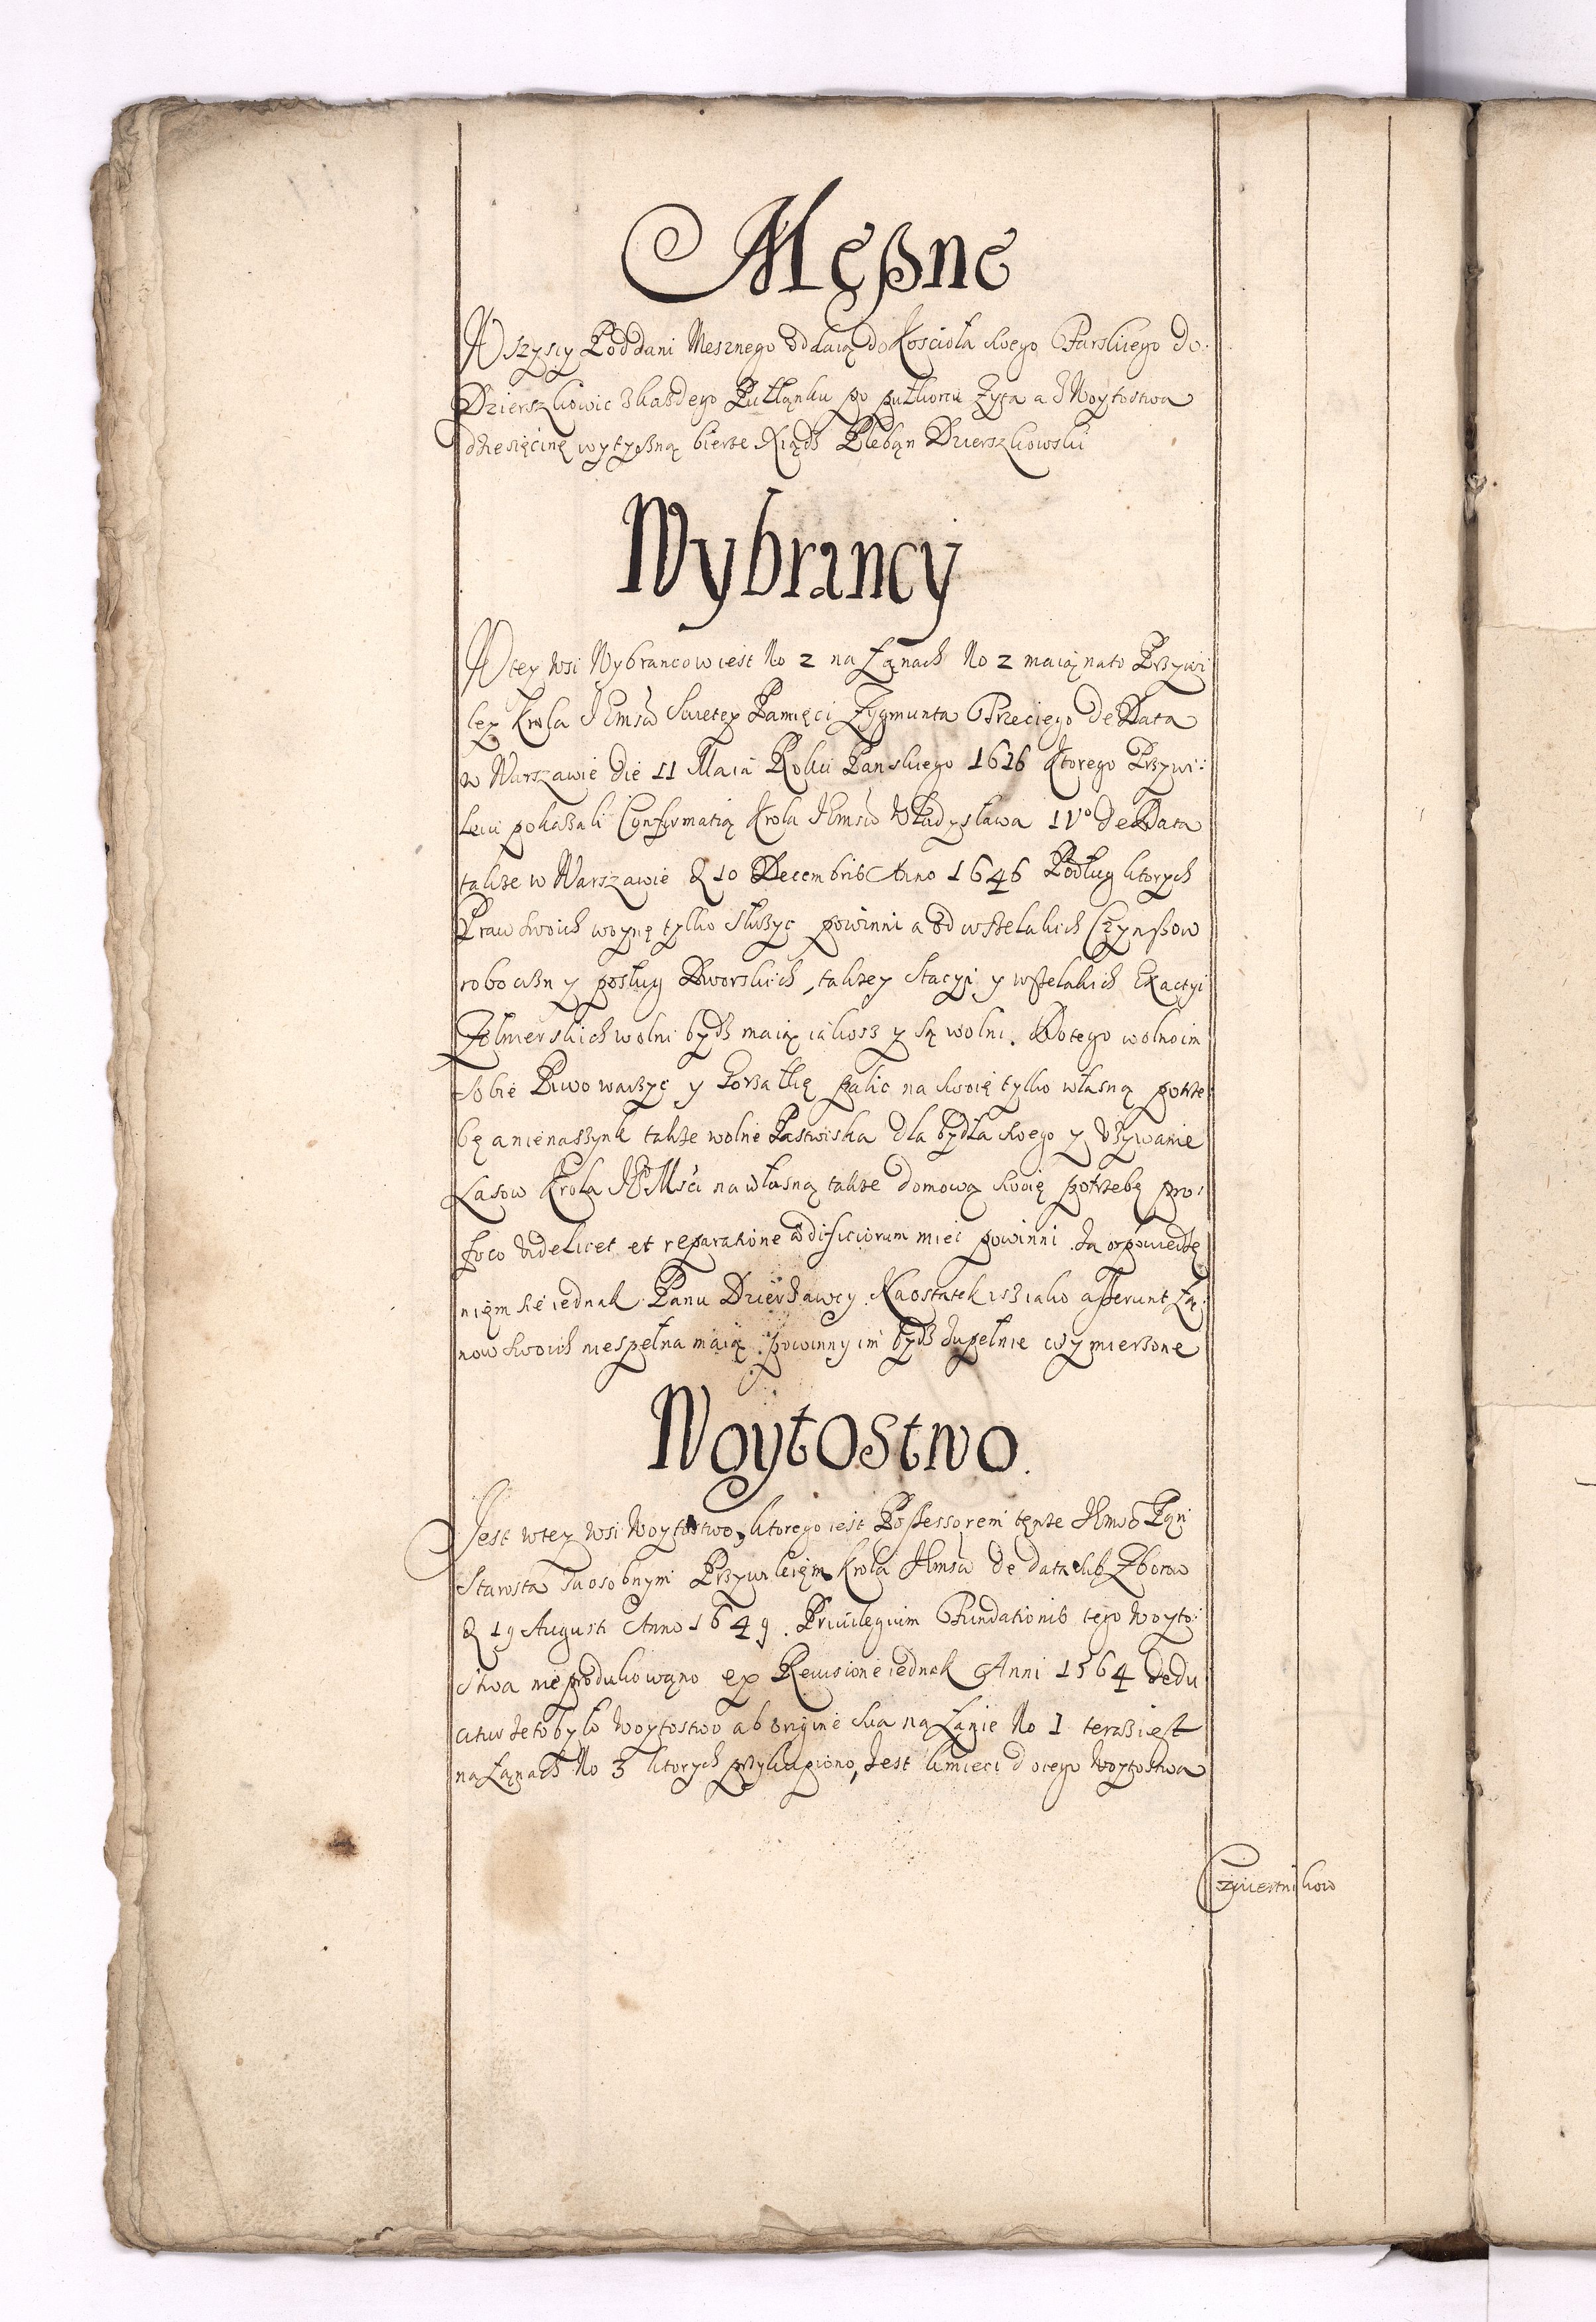 Męßne
Wszyscy Poddani Mesznego oddaią do Kościoła swego Farskiego do
Dzierszkowic z każdego Pułłanku po pułkorcu Zyta a z Woytostwa
dziesięcinę wytyßną bierze Xiądz Plebąn Dzierszkowski
Wybrancy
W tey Wsi Wybrancow iest No 2 na Łąnach No 2 maią na to Przywi
ley Krola JEmści Swietey Pamięci Zygmunta Trzeciego de Data
w Warszawie die 11 Maia Roku Panskiego 1616 Ktorego Przywi:
leiu pokazali Confirmatią Krola JEmści Władysława IVo de Data
takze w Warszawie d 10 Decembris Anno 1646 Podług ktorych
Praw swoich woynę tylko służyc powinni a od wszelakich Czynßow
robocizn y posług Dworskich, takze y Stacyi y wszelakich Exactyi
Zołnierskich wolni bydz maią iakosz y są wolni. Do tego wolno im
sobie Piwo warzyc y Gorzałkę palic na swoię tylko własną potrze
bę a nie na szynk takze wolne Pastwiska dla bydła swego y Vzywanie
Lasow Krola JEMści na własną takze domową swoię potrzebę pro
foco videlicet et reparatione ædificiorum miec powinni. Za opowiedze
nięm się iednak Panu Dzierzawcy. Na ostatek isz iako asserunt Łą:
now swoich niespełna maią, powinny im bydz zupełnie wymierzone
Woytostwo.
Jest w tey Wsi Woytostwo, ktorego iest Possessorem tęnze JEmść Pąn
Starosta za osobnym Przywileięm Krola JEmści de data sub Zborow
d 19 Augusti Anno 1649. Priuilegium Fundationis tego Woyto:
stwa nie produkowąno ex Reuisione iednak Anni 1564 dedu
citur ze to było Woytostwo ab origine sua na Łąnie No 1 teraz iest
na Łąnach No 3 ktorych przykupiono, Jest kmieci do tego Woytostwa
Czwiertnikow